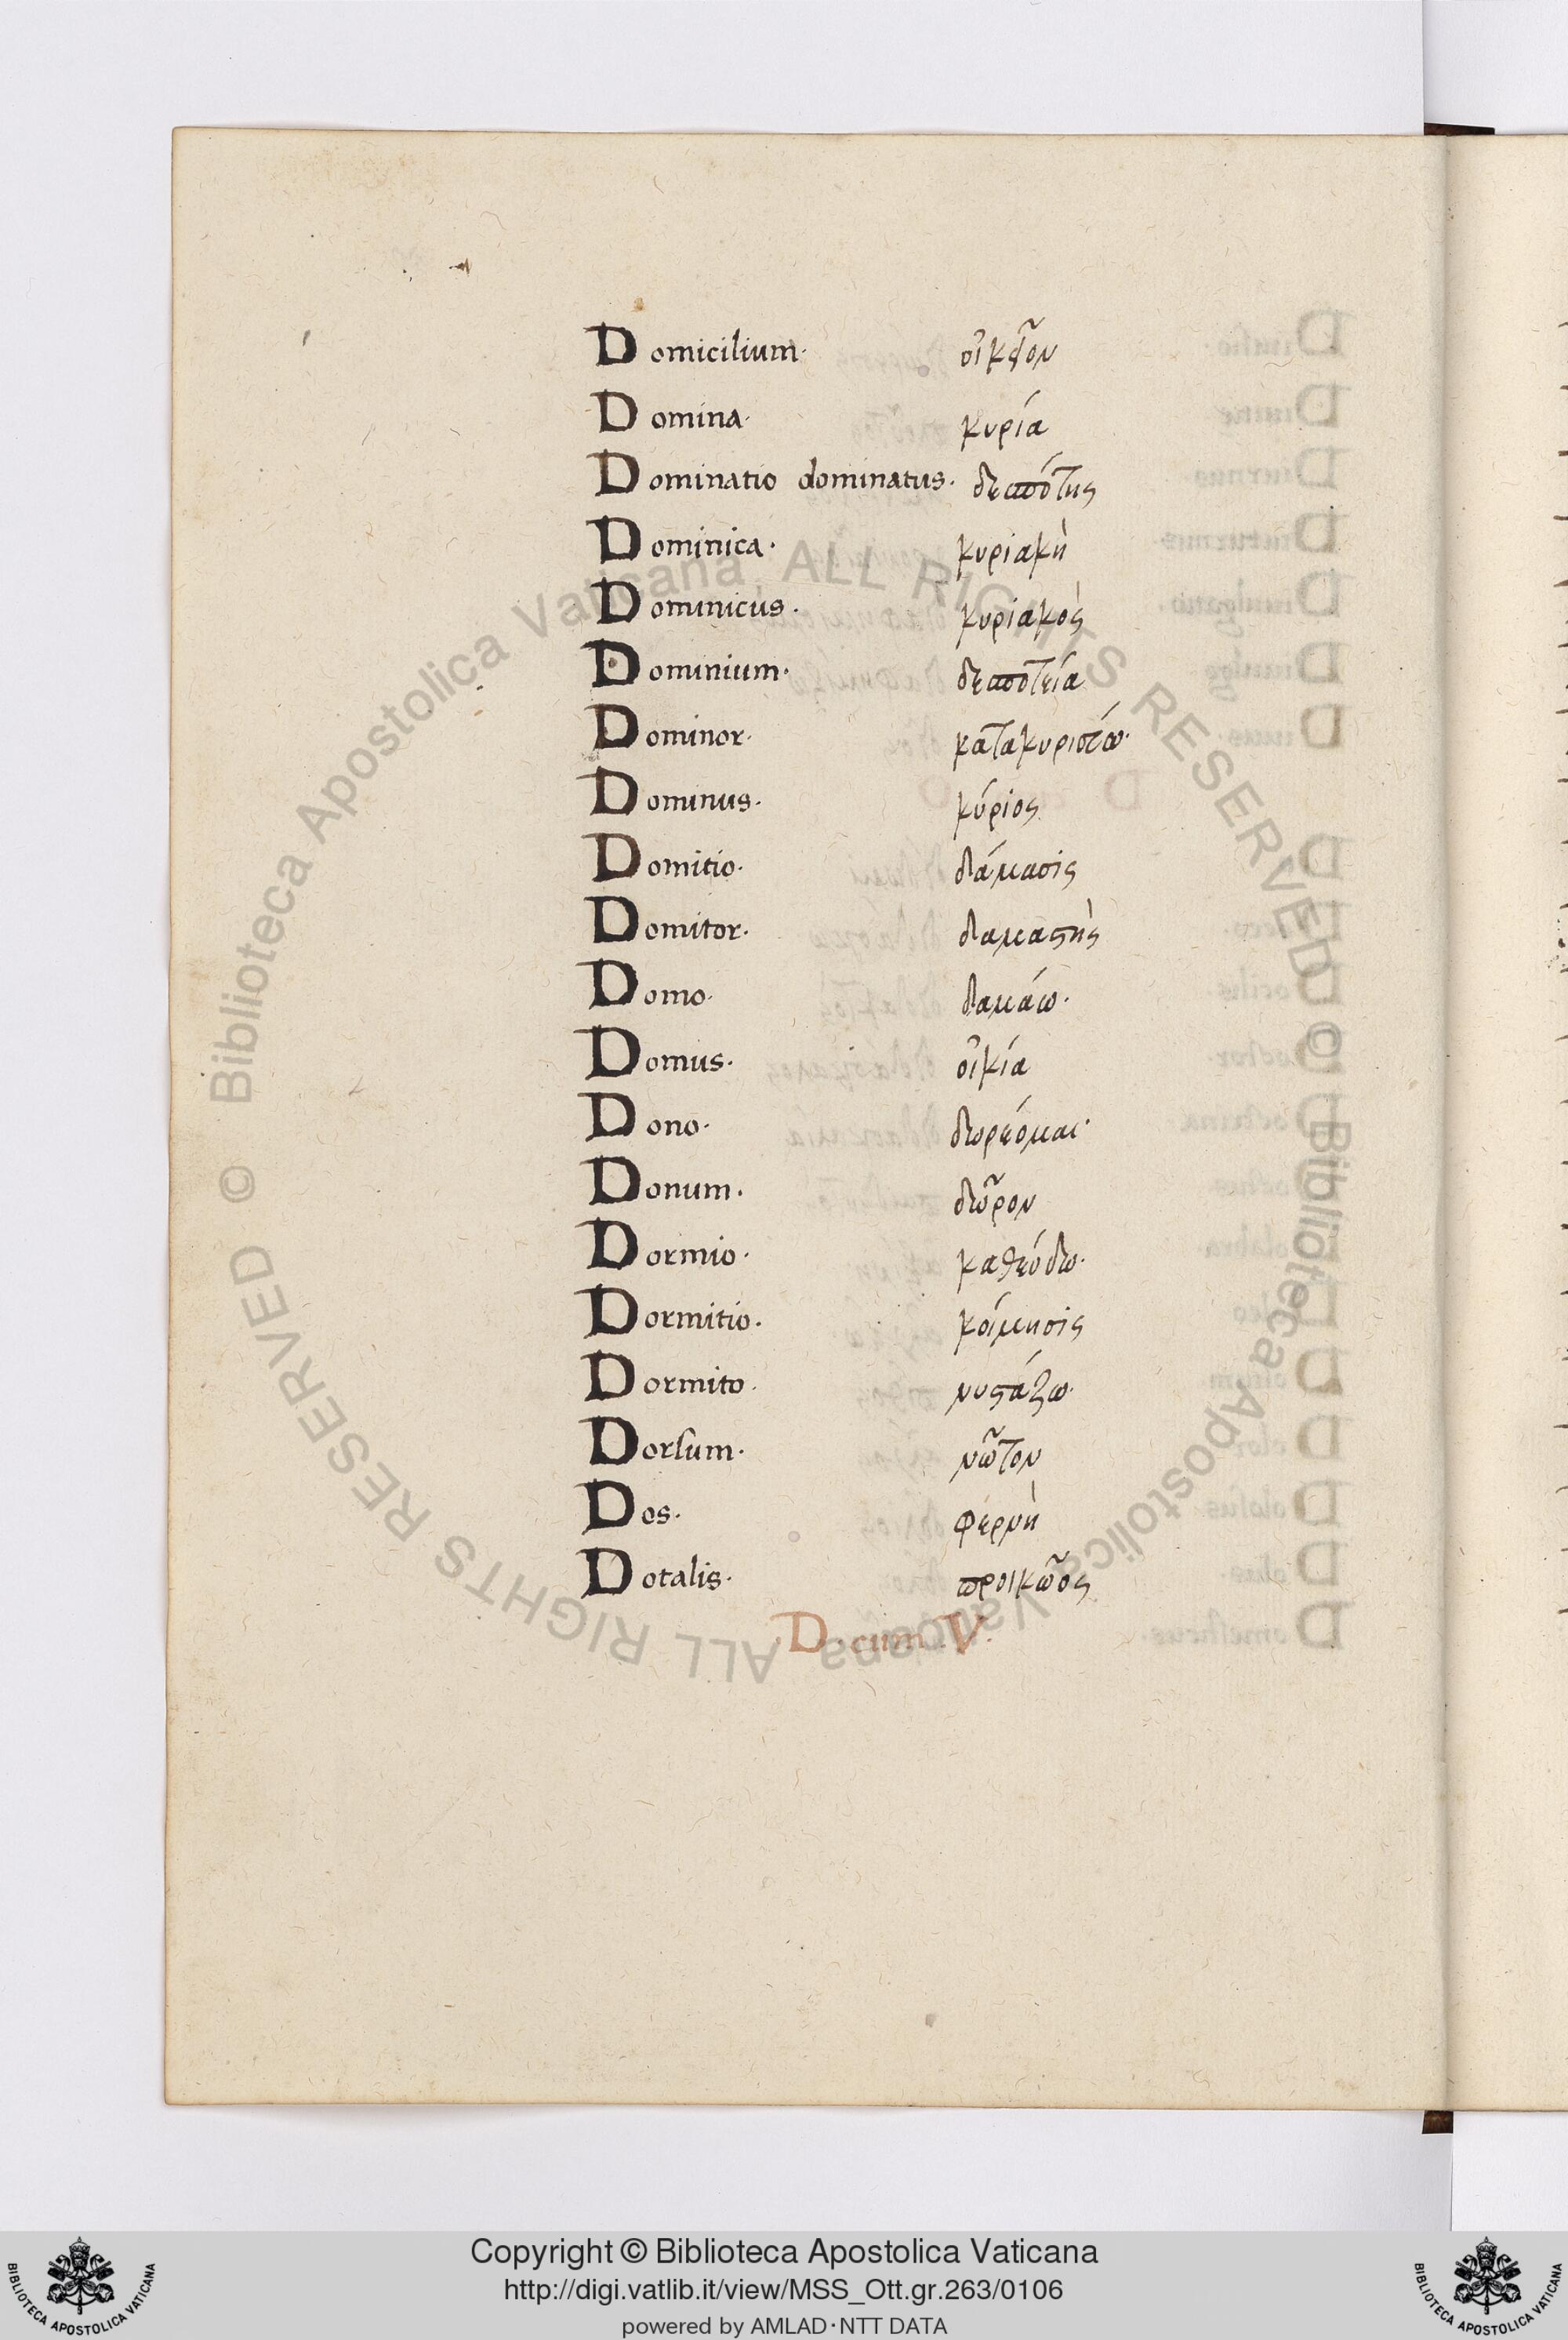 Domicilium· οἰκεῖον
Domina· κυρία
Dominatio dominatus· δεσπότης
Dominica· κυριακὴ
Dominicus· κυριακὸς
Dominium· δεσποτεία
Dominor· κατακυριεύω·
Dominus· κύριος
Domitio· δάμασις
Domitor· δαμαστὴς
Domo· δαμάω·
Domus· οἰκία
Dono· δωρέομαι·
Donum· δῶρον
Dormio· καθεύδω·
Dormitio· κοίμησις
Dormito· νυστάζω·
Dorsum· νῶτον
Dos· φερνὴ
Dotalis· προικῶος
D· cum V·
© Biblioteca Apostolica Vaticana, ALL RIGHTS RESERVED © Biblioteca Apostolica Vaticana, ALL RIGHTS RESERVED
Copyright © Biblioteca Apostolica Vaticana
http://digi.vatlib.it/view/MSS_Ott.gr.263/0106
powered by AMLAD·NTT DATA
BIBLIOTECA APOSTOLICA VATICANA
BIBLIOTECA APOSTOLICA VATICANA